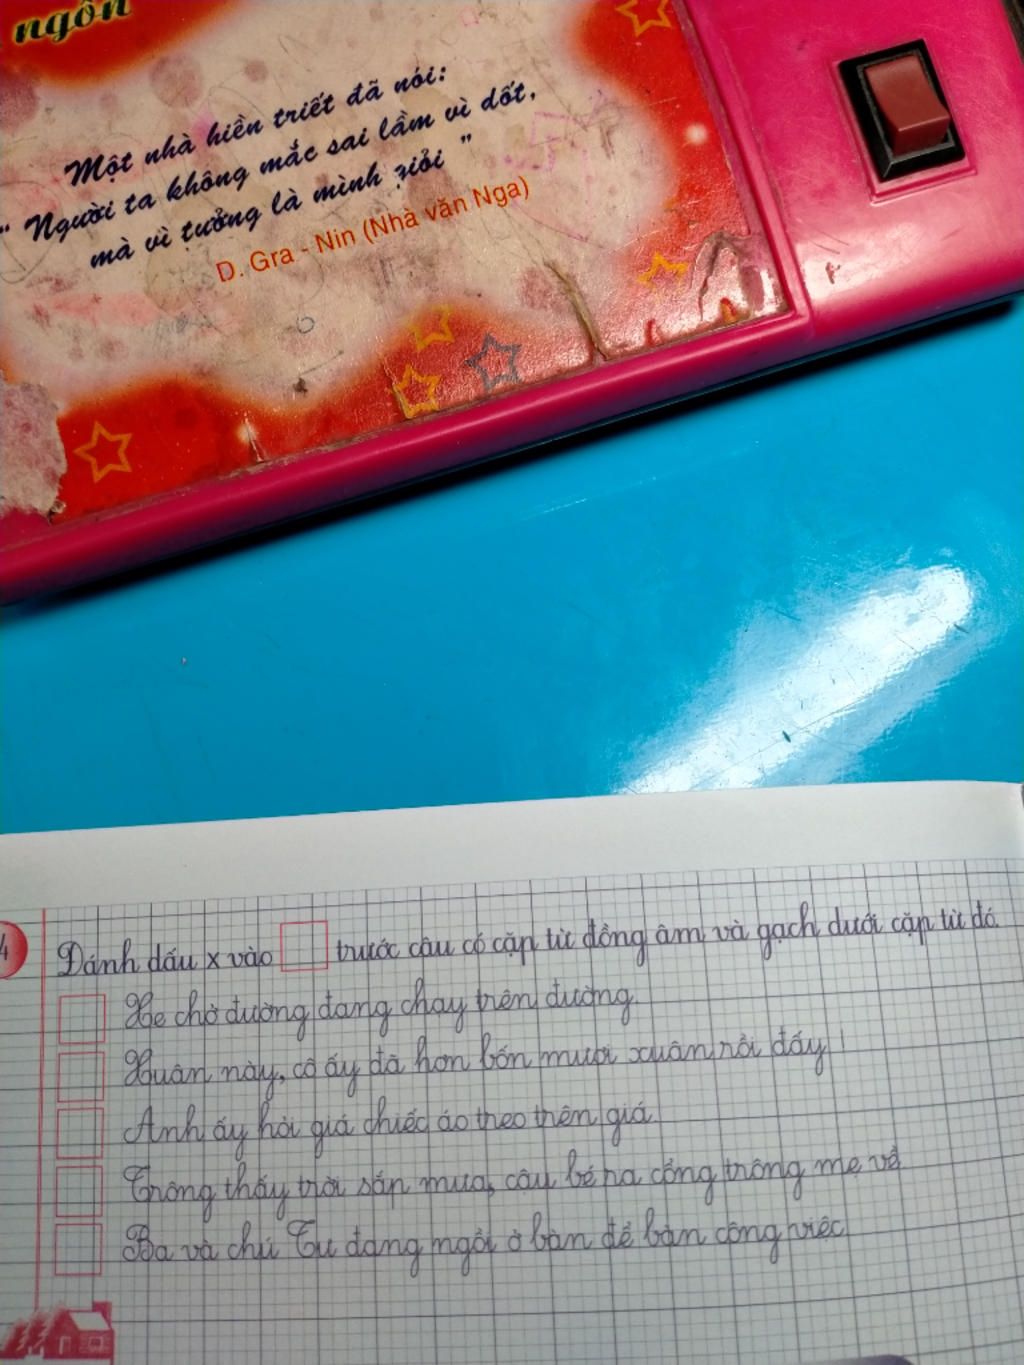 ngôn
Một nhà hiền triết đã nói:
" Người ta không mắc sai lầm vì dốt,
mà vì tưởng là mình giỏi "
D. Gra - Nin (Nhà văn Nga)
4
Đánh dấu x vào trước câu có cặp từ đồng âm và gạch dưới cặp từ đó.
Xe chở đường đang chạy trên đường.
Xuân này, cô ấy đã hơn bốn mươi xuân rồi đấy!
Anh ấy hỏi giá chiếc áo treo trên giá.
Trông thấy trời sắp mưa, cậu bé ra cổng trông mẹ về.
Ba và chú Tư đang ngồi ở bàn để bàn công việc.